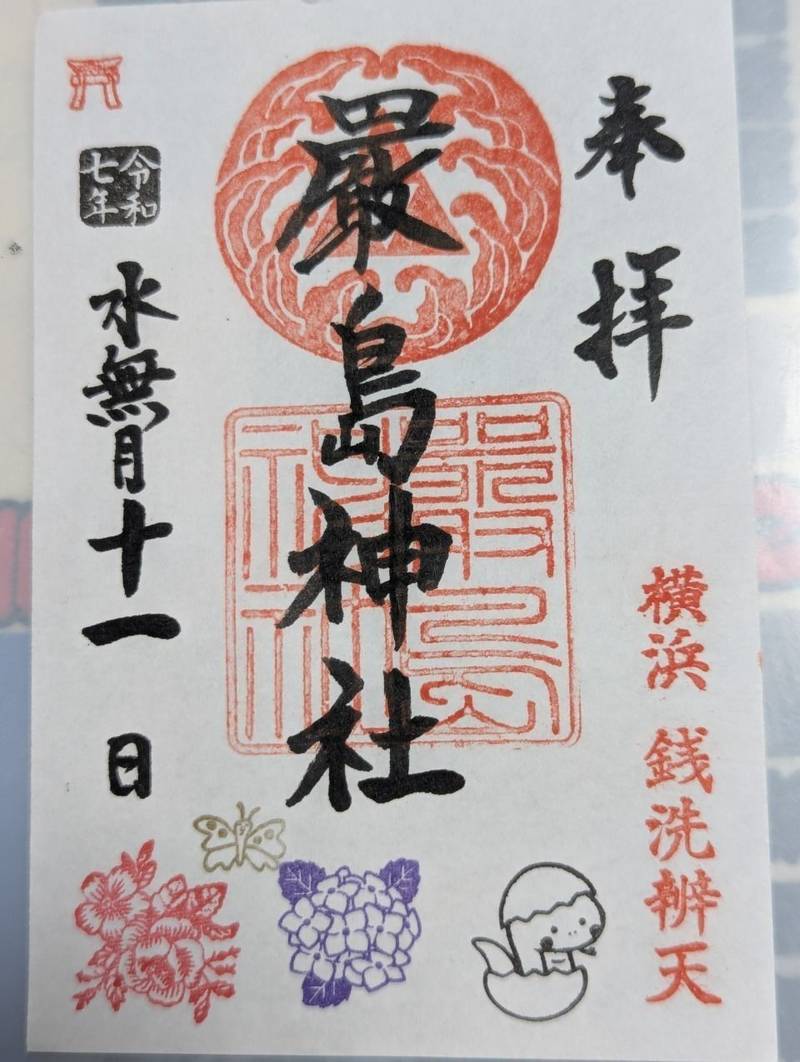 奉拝
横浜 銭洗辨天
嚴島神社
嚴島神社
令和七年
水無月十一日